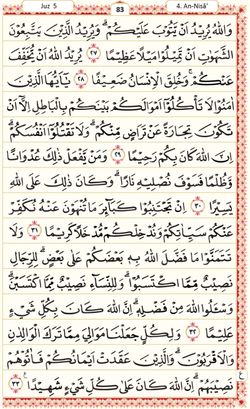 Juz 5
83
4. An-Nisā'
وَاللّٰهُ يُرِيْدُ اَنْ يَّتُوْبَ عَلَيْكُمْ ۗ وَيُرِيْدُ الَّذِيْنَ يَتَّبِعُوْنَ
الشَّهَوٰتِ اَنْ تَمِيْلُوْا مَيْلًا عَظِيْمًا ۝٢٧ يُرِيْدُ اللّٰهُ اَنْ يُّخَفِّفَ
عَنْكُمْ ۚ وَخُلِقَ الْاِنْسَانُ ضَعِيْفًا ۝٢٨ يٰٓاَيُّهَا الَّذِيْنَ
اٰمَنُوْا لَا تَأْكُلُوْٓا اَمْوَالَكُمْ بَيْنَكُمْ بِالْبَاطِلِ اِلَّآ اَنْ
تَكُوْنَ تِجَارَةً عَنْ تَرَاضٍ مِّنْكُمْ ۗ وَلَا تَقْتُلُوْٓا اَنْفُسَكُمْ ۗ
اِنَّ اللّٰهَ كَانَ بِكُمْ رَحِيْمًا ۝٢٩ وَمَنْ يَّفْعَلْ ذٰلِكَ عُدْوَانًا
وَّظُلْمًا فَسَوْفَ نُصْلِيْهِ نَارًا ۗ وَكَانَ ذٰلِكَ عَلَى اللّٰهِ
يَسِيْرًا ۝٣٠ اِنْ تَجْتَنِبُوْا كَبَاۤىِٕرَ مَا تُنْهَوْنَ عَنْهُ نُكَفِّرْ
عَنْكُمْ سَيِّاٰتِكُمْ وَنُدْخِلْكُمْ مُّدْخَلًا كَرِيْمًا ۝٣١ وَلَا
تَتَمَنَّوْا مَا فَضَّلَ اللّٰهُ بِهٖ بَعْضَكُمْ عَلٰى بَعْضٍ ۗ لِلرِّجَالِ
نَصِيْبٌ مِّمَّا اكْتَسَبُوْا ۗ وَلِلنِّسَاۤءِ نَصِيْبٌ مِّمَّا اكْتَسَبْنَ ۗ
وَسْـَٔلُوا اللّٰهَ مِنْ فَضْلِهٖ ۗ اِنَّ اللّٰهَ كَانَ بِكُلِّ شَيْءٍ
عَلِيْمًا ۝٣٢ وَلِكُلٍّ جَعَلْنَا مَوَالِيَ مِمَّا تَرَكَ الْوَالِدٰنِ
وَالْاَقْرَبُوْنَ ۗ وَالَّذِيْنَ عَقَدَتْ اَيْمَانُكُمْ فَاٰتُوْهُمْ
نَصِيْبَهُمْ ۗ اِنَّ اللّٰهَ كَانَ عَلٰى كُلِّ شَيْءٍ شَهِيْدًا ۝٣٣